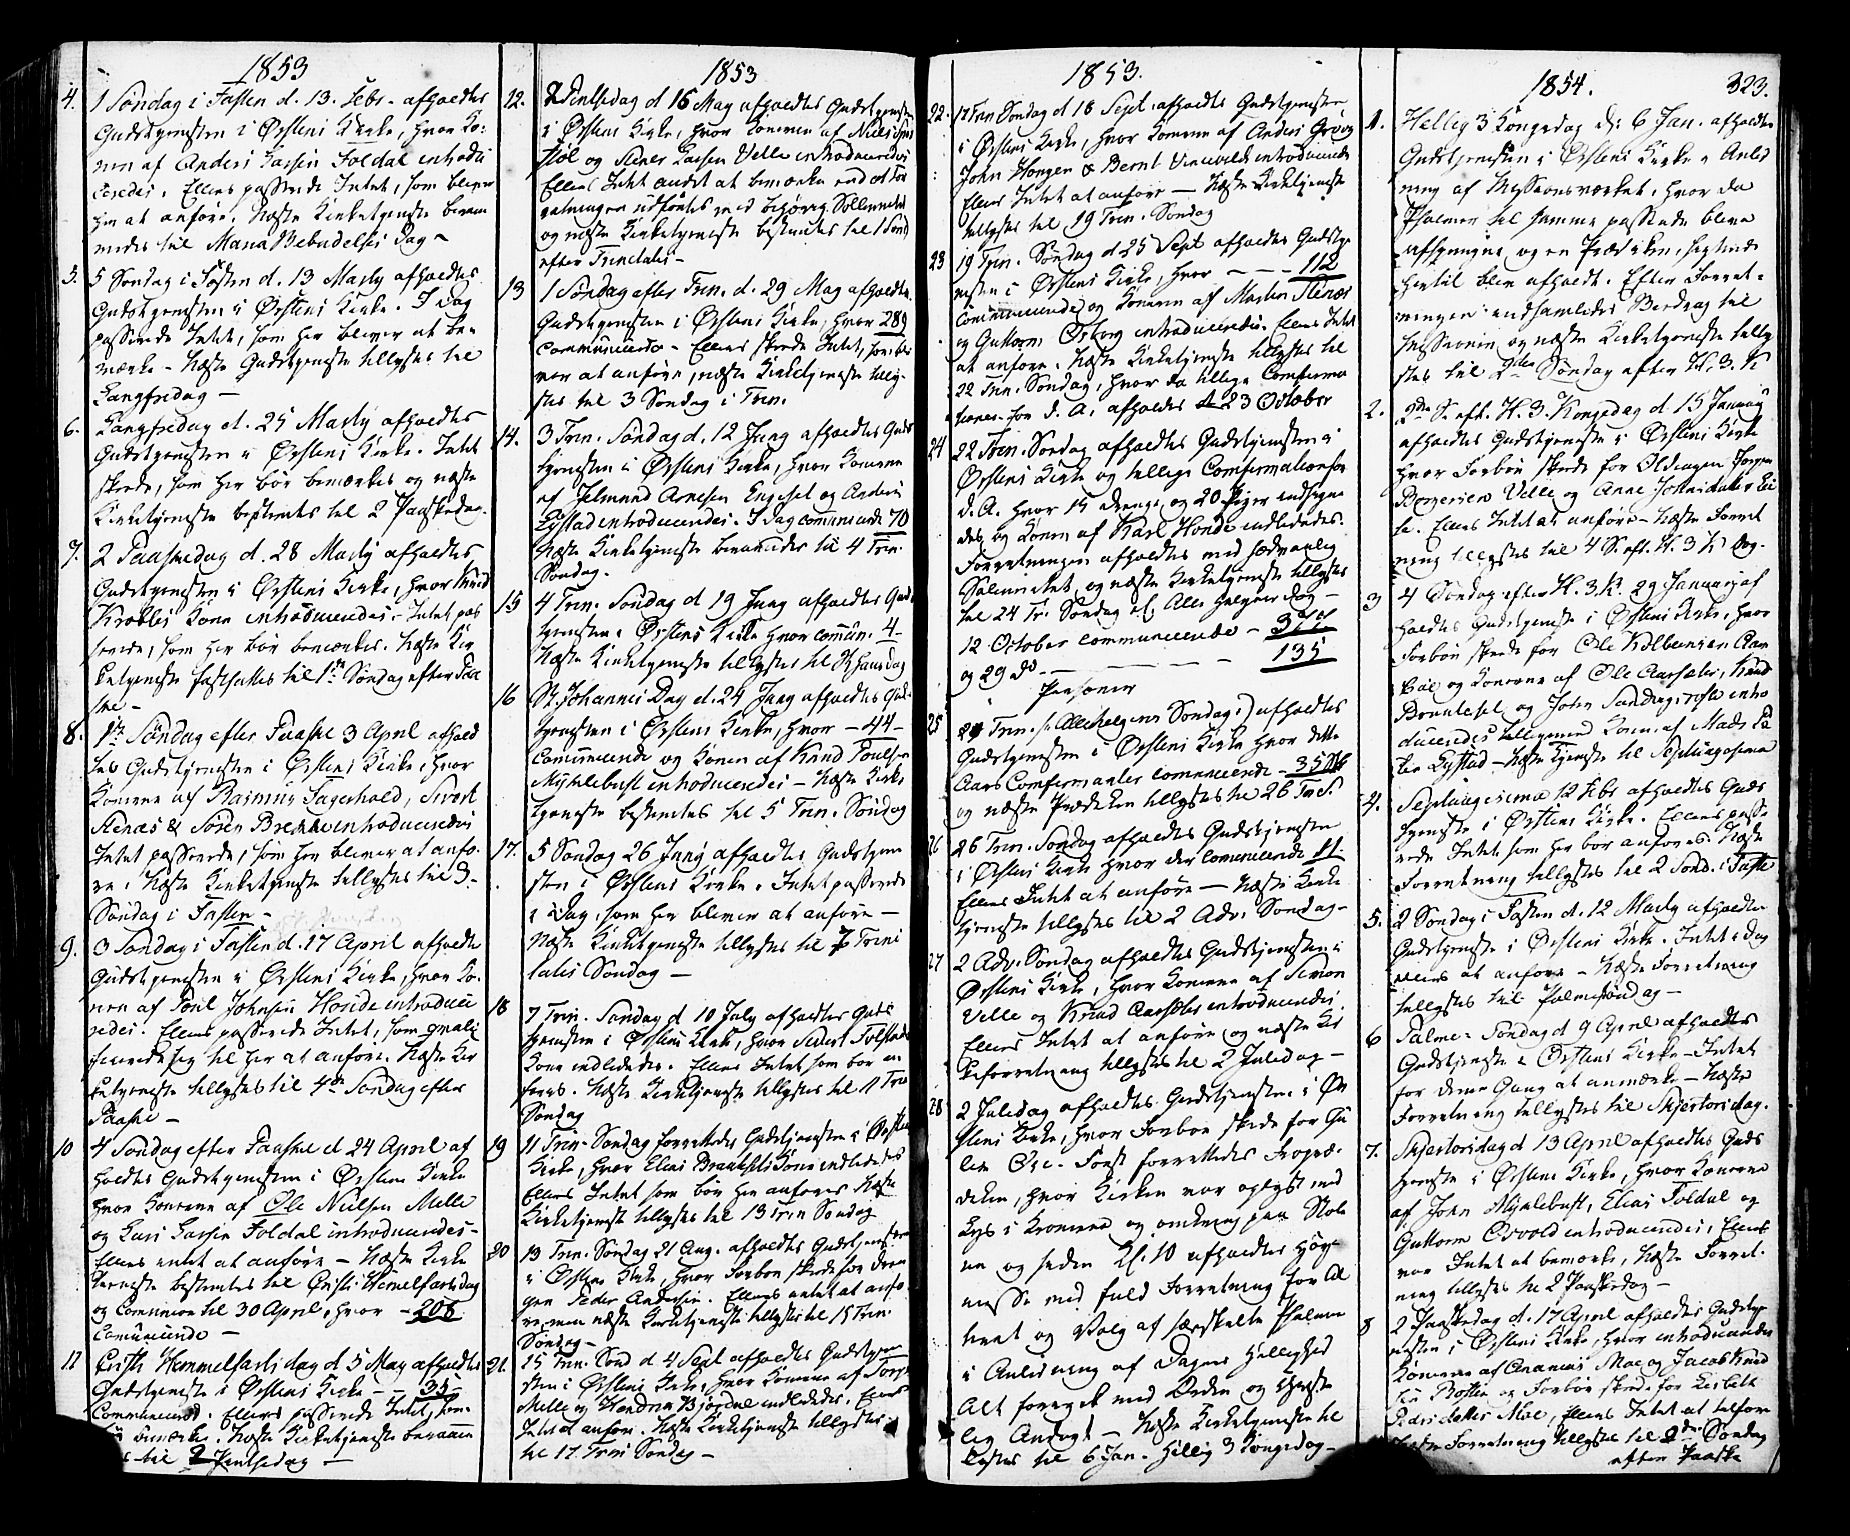 1853
4. 1 Søndag i Fasten d. 13. Febr. afholdtes
Gudstjenesten i Ørstens Kirke, hvor Ko-
nen af Anders Larsen Foldal introdu
ceredes. Ellers passerede Intet, som bliver
her at anføre. Næste Kirketjeneste beram
medes til Maria Bebudelses Dag –
5. 5 Søndag i Fasten d. 13 Marty afholdtes
Gudstjenesten i Ørstens Kirke. I dag
passerede Intet, som her bliver at be-
mærke – Næste Gudstjeneste tillystes til
Langfredag –
6. Langfredag d. 25 Marty afholdtes
Gudstjenesten i Ørstens Kirke. Intet
skeede, som her bør bemærkes og næste
Kirketjeneste bestemtes til 2 Paaskedag.
7. 2 Paaskedag d. 28 Marty afholdtes
Gudstjenesten i Ørstens Kirke, hvor Knud
Krøbles Kone introduceredes. Intet pas
serede, som her bør bemærkes. Næste Kir
ketjeneste fastsattes til 1ste Søndag efter Paa
ske –
8. 1ste Søndag efter Paaske 3 April afhold
tes Gudstjenesten i Ørstens Kirke, hvor
Konerne af Rasmus Sagerhold, Sivert
Stenæs & Søren Brekke introduceredes
Intet passerede, som her bliver at anfø-
re. Næste Kirketjeneste tillystes til 3-
Søndag i Fasten –
9. 3 Søndag i Fasten d. 17 April afholdtes
Gudstjenesten i Ørstens Kirke, hvor Ko-
nen af Poul Johnsen Hovde introdu
ceredes. Ellers passerede Intet, som qvali
ficerede sig til her at anføre. Næste Kir
ketjeneste tillystes til 4de Søndag efter
Paaske –
10 4 Søndag efter Paaske d 24 April af
holdtes Gudstjenesten i Ørstens Kirke
hvor Konerne af Ole Nielsen Melle
og Lars Larsen Foldal introduceredes –
Ellers intet at anføre – Næste Kirke
tjeneste bestemtes til Christi Himmelfartsdag
og Communion til 30 April, hvor – 206
Comunicerede –
11 Christi Himmelfartsdag d 5 May afholdtes
Gudstjeneste i Ørstens Kirke – 35 –
Communicerede. Ellers passerede Intet, som
bemærkes. Næste Kirketjeneste beramme
til 2 Pintsedag –
1853
12. 2 Pintsedag d 16 May afholdtes Gudstjenesten
i Ørstens Kirke, hvor Konerne af Niels
Støl og Stener Larsen Velle introduceredes
Ellers Intet andet at bemærke end at For
retningen udførtes med behørig Sollennitet
og næste Kirketjeneste bestemtes til 1 Sønd
efter Trinitatis –
13 1 Søndag efter Trin. d. 29 May afholdtes
Gudstjenesten i Ørstens Kirke, hvor 289
Communicerede – Ellers skeede Intet, som bli
ver at anføre, næste Kirketjeneste tilly-
stes til 3 Søndag i Trin.
14. 3 Trin. Søndag d. 12 Juny afholdtes Guds
tjenesten i Ørstens Kirke, hvor Konerne
af Jelmund Arnesen Engeset og Anders
Lystad introduceredes. I dag communicerede 70
Næste Kirketjeneste berammedes til 4 Trin.
Søndag.
15 4 Trin. Søndag d 19 Juny afholdtes Guds
tjenesten i Ørstens Kirke hvor commun. 4 –
Næste Kirketjeneste tillystes til St. Hansdag
16 St. Johannes Dag d. 24 Juny afholdtes Gud-
tjenesten i Ørstens Kirke, hvor – 44 –
Communicerede og Konen af Knud Poulsen
Myklebust introduceredes – Næste Kirke
tjeneste bestemtes til 5 Trin. Søndag
17. 5 Søndag 26 Juny afholdtes Gudstjene
sten i Ørstens Kirke. Intet passerede
i Dag, som her bliver at anføre –
Næste Kirketjeneste tillystes til 7 Trini
tatis Søndag –
18 7 Trin. Søndag d 10 July afholdtes Guds
tjenesten i Ørstens Kirke, hvor Sivert Folstads
Kone indlededes. Ellers Intet, som bør an
føres. Næste Kirketjeneste tillystes til 11 Trin
Søndag
19 11 Trin. Søndag forrettedes Gudstjenesten i Ørstens
Kirke, hvor Elias Brautesets Kone indlededes
Ellers Intet som bør her anføres Næste
Kirketjeneste tillystes til 13 Trin Søndag
20 13 Trin. Søndag 21 Aug. afholdtes Gudstjenesten
i Ørstens Kirke, hvor Forbøn skeede for Dren
gen Peder Andersen. Ellers intet at anfø
re, men næste Kirketjeneste tillystes til 15 Trin.
Søndag –
21. 15 Trin. Sønd d 4 Sept afholdtes Gudstjene
sten i Ørstens Kirke, hvor Konerne af
Melle og Hendrik Bjørdal indlededes. Ellers
Intet at anføre. Næste Kirketjeneste tillystes
til 17. Trin Søndag –
1853.
22. 17 Trin Søndag d 18 Sept. afholdtes Gudstjenesten
i Ørstens Kirke, hvor Konerne af Anders
John Hovgen & Bernt introducerede
Ellers Intet at anføre – Næste Kirketjeneste
tillystes til 19 Trin. Søndag
23 19 Trin. Søndag d 25 Sept afholdtes Gudstje
nesten i Ørstens Kirke, hvor – – – 112
Communicerede og Konerne af Martin Stenæs
og Guttorm introduceredes. Ellers Intet
at anføre. Næste Kirketjeneste tillystes til
22 Trin. Søndag, hvor da tillige Comfirma
tionen for d. A. afholdes d 23 October
24 22 Trin. Søndag afholdtes Gudstjenesten i
Ørstens Kirke og tillige Comfirmation for
d. A. hvor 15 Drenge og 20 Piger indsegne
des, og Konen af Karl Hovde indlededes.
Forretningen afholdtes med sædvanlig
Solennitet, og næste Kirketjeneste tillystes
til 24 Tr. Søndag el. Alle Helgens Dag –
12 October communicerede –
og 29 do – – – – 135
Personer
25 24 Trin. (: Allehelgens Søndag :) afholdtes
Gudstjenesten i Ørstens Kirke hvor dette
Aars Comfirmanter communicerede –
og næste Prædiken tillystes til 26 Tr S.
26 26 Trin. Søndag afholdtes Gudstjenesten
i Ørstens Kirke hvor der communicerede 11.
Ellers Intet at anføre – Næste Kirke
tjeneste tillystes til 2 Adv. Søndag –
27 2 Adv. Søndag afholdtes Gudstjenesten i
Ørstens Kirke, hvor Konerne af Simon
Velle og Knud Aarsæter introduceredes
Ellers Intet at anføre og næste Kir
keforretning tillystes til 2 Juledag –
28 2 Juledag afholdtes Gudstjenesten i Ør
stens Kirke, hvor Forbøn skeede for
Øie. Først forrettedes Fropræ-
diken, hvor Kirken var oplyst med
Lys i Kronerne og omkring paa Stole
ne og siden Kl. 10 afholdtes Høy-
messe med fuld Forretning for Al
teret og Valg af særskilte Psalmer
i Anledning af Dagens Hellighed
Alt foregik med Orden og
lig Andagt – Næste Kirketjeneste til
lystes til 6 Jan. Hellig 3 Kongedag –
1854. 323.
1. Hellig 3 Kongedag d: 6 Jan. afholdtes
Gudstjenesten i Ørstens Kirke i Anled
ning af Missionsværket, hvor da
Psalmer til samme passende bleve
afsjungne og en Prædiken, sigtende
hertil blev afholdt. Efter Forret-
ningen indsamledes Bidrag til
Missionen og næste Kirketjeneste tilly
stes til 2den Søndag efter H. 3. K
2. 2den S. eft. H. 3. Kongedag d. 15 January
afholdtes Gudstjeneste i Ørstens Kirke
hvor Forbøn skeede for Oldingen Jørgen
Velle og Anne Johnsdatter
Ellers Intet at anføre – Næste Forret
ning tillystes til 4 S. eft. H. 3 K Dag.
3 4 Søndag efter H. 3. K. 29 January af
holdtes Gudstjeneste i Ørstens Kirke, hvor
Forbøn skeede for Ole Kolbeinsen Aar
og Konerne af Ole Aarsæter, Knud
Brauteset og John intro
duceredes tilligemed Konen af Mads
Lystad – Næste Tjeneste til Septuagesima
4. Septuagesima 12 Febr afholdtes Guds
tjeneste i Ørstens Kirke. Ellers passe
rede Intet som her bør anføres. Næste
Forretning tillystes til 2 Sønd. i Faste
5. 2 Søndag i Fasten d. 12 Marty afholdtes
Gudstjeneste i Ørstens Kirke. Intet i dag
at anføre – Næste Forretning
tillystes til Palmesøndag –
6 Palme-Søndag d 9 April afholdtes
Gudstjeneste i Ørstens Kirke – Intet
for denne Gang at anmærke – Næste
Forretning tillystes til Skjertorsdag.
7. Skjertorsdag d 13 April afholdtes Guds
tjeneste i Ørstens Kirke, hvor Konerne
af John Myklebust, Elias Foldal og
Guttorm introduceredes, Ellers
var Intet at bemærke, Næste Forret-
ning tillystes til 2 Paaskedag –
8 2 Paaskedag d. 17 April afholdtes Gudstje
nesten i Ørstens Kirke, hvor introduceredes
Konerne af Ananias Moe og Jacob Knud
sen og Forbøn skeede for Lisbeth
Pedersdatter Moe, Ellers Intet at anføre
Næste Forretning tillystes til 2den Søndag
efter Paaske